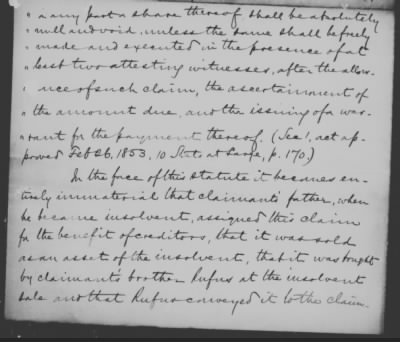 " or any part or share thereof shall be absolutely
" null and void, unless the same shall be freely
" made and executed in the presence of at
" least two attesting witnesses, after the allow-
" ance of such claim, the ascertainment of
" the amount due, and the issuing of a war-
" rant for the payment thereof. (Sec 1, act ap-
proved Feb 26, 1853, 10 Stats at Large, p. 170.)
In the face of this statute it becomes en-
tirely immaterial that claimants father, when
he became insolvent, assigned this claim
for the benefit of creditors, that it was sold
as an asset of the insolvent, that it was bought
by claimant's brother Rufus at the insolvent
sale and that Rufus conveyed it to the claim-